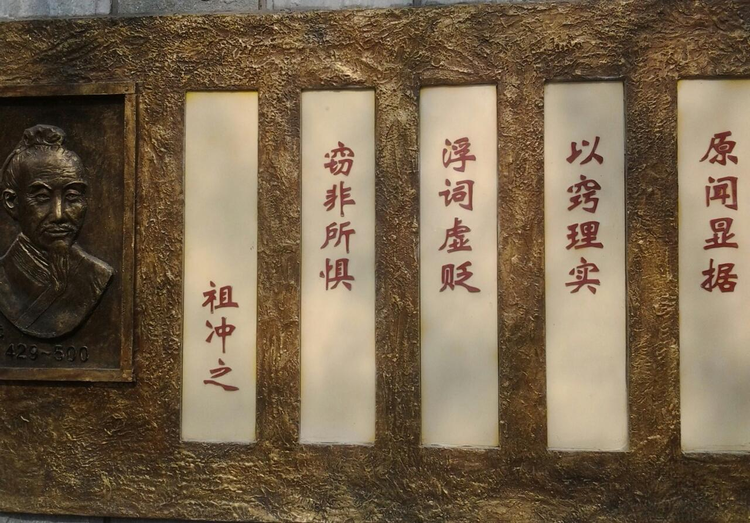 原闻显据
以窍理实
浮词虚贬
窃非所惧
祖冲之
429~500